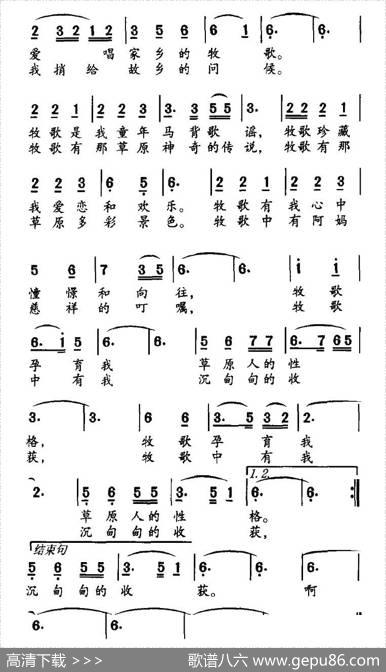 2 32 12 | 3 5 6 | 6 1 | 6. | 6. |
爱 唱家乡的牧 歌。
我捎给故乡的问 候。
2 2 1 | 2 2 3 | 3. 3 55 | 3. | 22 2 1 |
牧歌是我童年马背歌 谣, 牧歌珍藏
牧歌有那草原神奇的传 说, 牧歌有那
2 2 3 | 6 5 | 6. | 2 2 1 | 2 2 3 |
我爱恋和欢乐。 牧歌有我心中
草原多彩景色。 牧歌中有阿妈
5 6 | 7 35 | 6. | 6. | i i |
憧憬和向往, 牧歌
慈祥的叮嘱, 牧歌
6. i 5 | 6. | 6. | 5 6 77 | 6. 7 65 |
孕育我 草原人的性
中有我 沉甸甸的收
3. | 3. | 6 6 | 3. 5 32 | 2. |
格, 牧歌孕育我
获, 牧歌中有我
2. | 5 6 55 | 3. 5 1 | 6. | 6. :||
1. 2.
草原人的性 格。
沉甸甸的收 获,
结束句
5 6 55 | 3. 5 1 | 6. | 6. | 6 6 |
沉甸甸的收 获。 啊
6. | 6. | 6. | 6. |
高清下载 >>>> 歌谱八六 www.gepu86.com